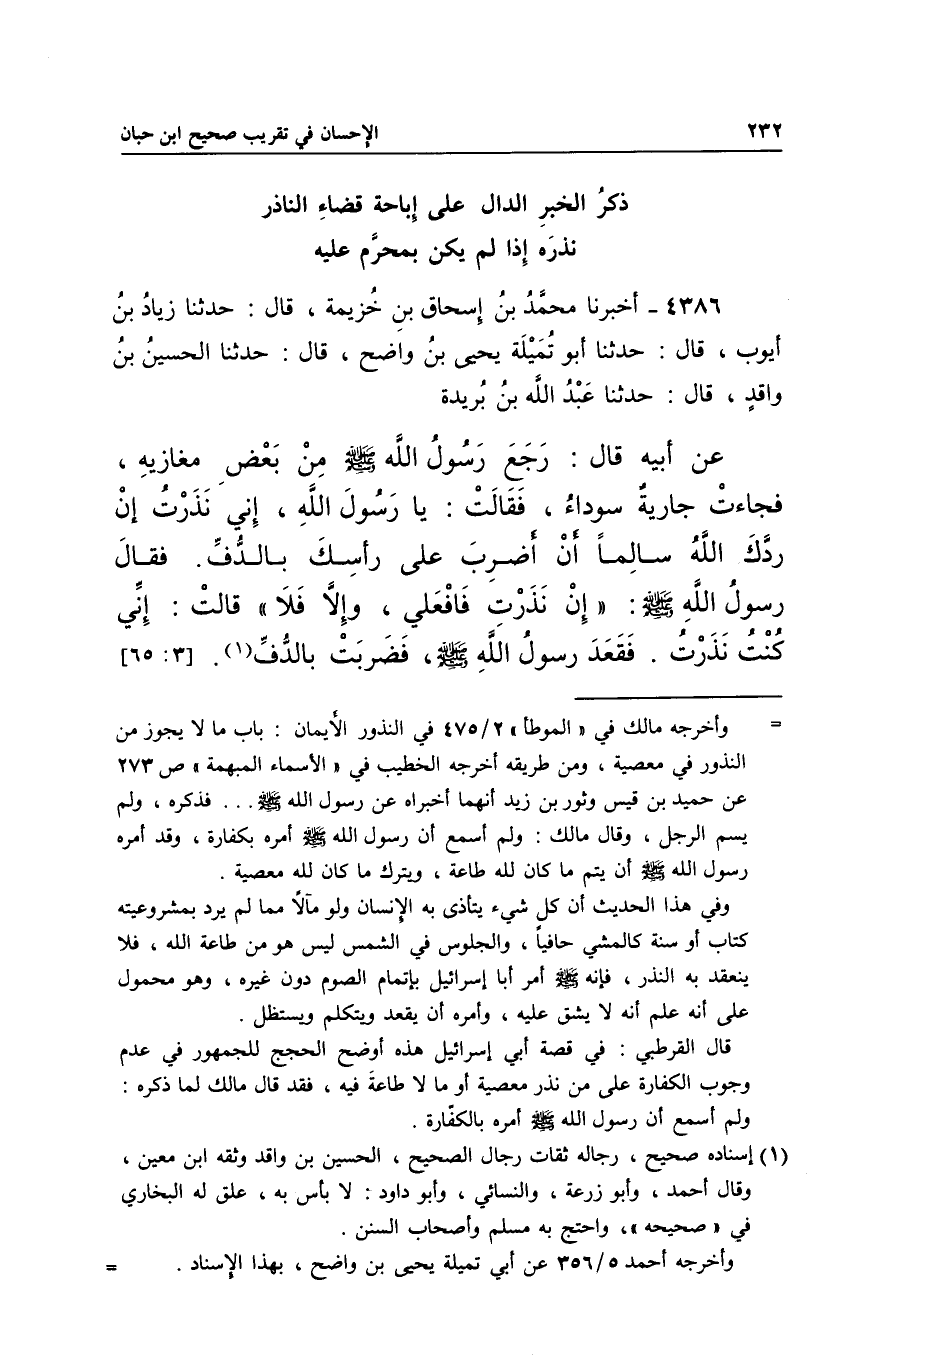 ٢٣٢ الإحسان في تقريب صحيح ابن حبان
ذكرُ الخبرِ الدال على إباحة قضاءِ الناذر
نذرَه إذا لم يكن بمحرَّم عليه
٤٣٨٦ ـ أخبرنا محمَّدُ بنُ إسحاق بنِ خُزيمة ، قال : حدثنا زيادُ بنُ
أيوب ، قال : حدثنا أبو تُمَيْلَة يحيى بنُ واضح ، قال : حدثنا الحسينُ بنُ
واقدٍ ، قال : حدثنا عَبْدُ اللَّه بنُ بُريدة
عن أبيه قال : رَجَعَ رَسُولُ اللَّه ﷺ مِنْ بَعْضِ مغازيهِ ،
فجاءتْ جاريةٌ سوداءُ ، فَقَالَتْ : يا رَسُولَ اللَّهِ ، إني نَذَرْتُ إنْ
ردَّكَ اللَّهُ سالماً أَنْ أَضرِبَ على رأسِكَ بالدُّفِّ. فقالَ
رسولُ اللَّهِ ﷺ: « إِنْ نَذَرْتِ فَافْعَلي ، وإلَّا فَلَا » قالتْ : إنِّي
كُنْتُ نَذَرْتُ . فَقَعَدَ رسولُ اللَّهِ ﷺ، فَضَربَتْ بالدُّفِّ(١). [٣: ٦٥]
= وأخرجه مالك في « الموطأ » ٤٧٥/٢ في النذور الأَيمان : باب ما لا يجوز من
النذور في معصية ، ومن طريقه أخرجه الخطيب في « الأسماء المبهمة » ص ٢٧٣
عن حميد بن قيس وثور بن زيد أنهما أخبراه عن رسول الله ﷺ... فذكره ، ولم
يسم الرجل ، وقال مالك : ولم أسمع أن رسول الله ﷺ أمره بكفارة ، وقد أمره
رسول الله ﷺ أن يتم ما كان لله طاعة ، ويترك ما كان لله معصية .
وفي هذا الحديث أن كل شيء يتأذى به الإنسان ولو مآلاً مما لم يرد بمشروعيته
كتاب أو سنة كالمشي حافياً ، والجلوس في الشمس ليس هو من طاعة الله ، فلا
ينعقد به النذر ، فإنه ﷺ أمر أبا إسرائيل بإتمام الصوم دون غيره ، وهو محمول
على أنه علم أنه لا يشق عليه ، وأمره أن يقعد ويتكلم ويستظل .
قال القرطبي : في قصة أبي إسرائيل هذه أوضح الحجج للجمهور في عدم
وجوب الكفارة على من نذر معصية أو ما لا طاعةَ فيه ، فقد قال مالك لما ذكره :
ولم أسمع أن رسول الله ﷺ أمره بالكفّارة .
(١) إسناده صحيح ، رجاله ثقات رجال الصحيح ، الحسين بن واقد وثقه ابن معين ،
وقال أحمد ، وأبو زرعة ، والنسائي ، وأبو داود : لا بأس به ، علق له البخاري
في « صحيحه »، واحتج به مسلم وأصحاب السنن .
وأخرجه أحمد ٣٥٦/٥ عن أبي تميلة يحيى بن واضح ، بهذا الإسناد . =